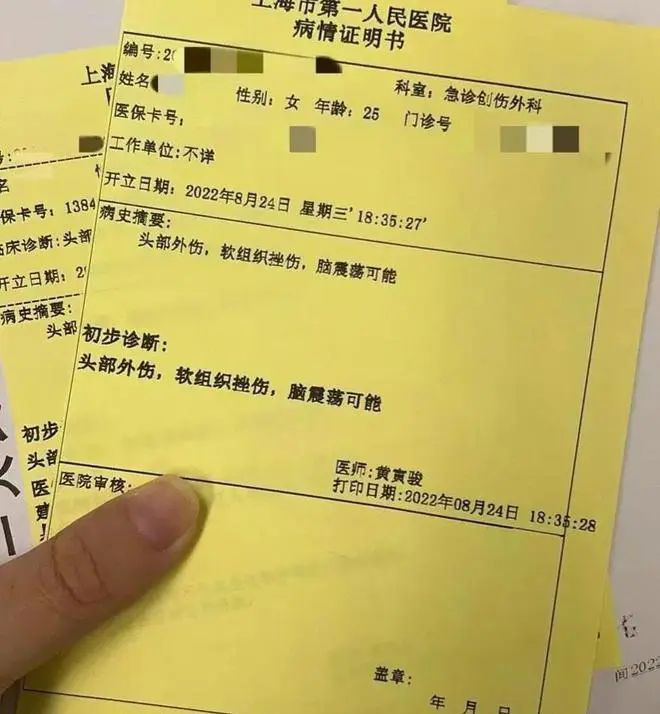 上海市第一人民医院
病情证明书
编号:2
姓名
科室: 急诊创伤外科
性别: 女 年龄: 25 门诊号
医保卡号:
工作单位:不详
开立日期: 2022年8月24日 星期三'18:35:27'
病史摘要:
头部外伤, 软组织挫伤, 脑震荡可能
初步诊断:
头部外伤, 软组织挫伤, 脑震荡可能
医师:黄寅骏
打印日期:2022年08月24日 18:35:28
医院审核:
盖章:
年 月 日
上海
名
保卡号: 1384
临床诊断:头部
开立日期: 2
病史摘要:
头部
初步
头部
医
建
间2022